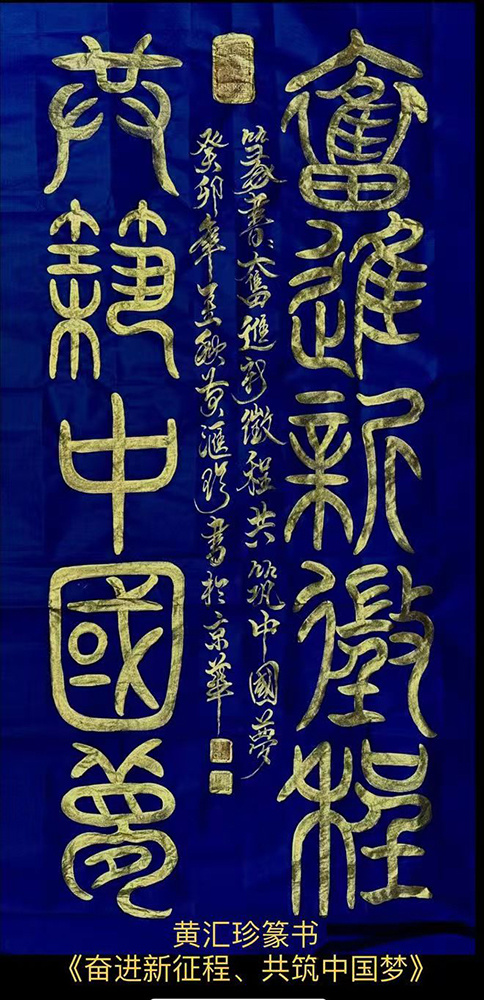 奮進新徵程
共築中國夢
篆書奮進新徵程共筑中國夢
癸卯年孟秋黄滙珍書於京華
黄汇珍篆书
《奋进新征程、共筑中国梦》